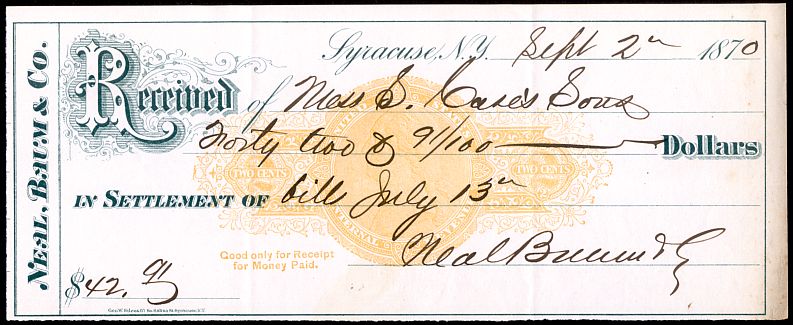 NEAL, BAUM & CO.
Syracuse, N.Y. Sept 2 1870
Received of Mess S. Case's Sons
Forty two & 91/100 Dollars
IN SETTLEMENT OF bill July 13
TWO CENTS TWO CENTS
INTERNAL
Good only for Receipt
for Money Paid.
Neal Baum & Co
$42.91